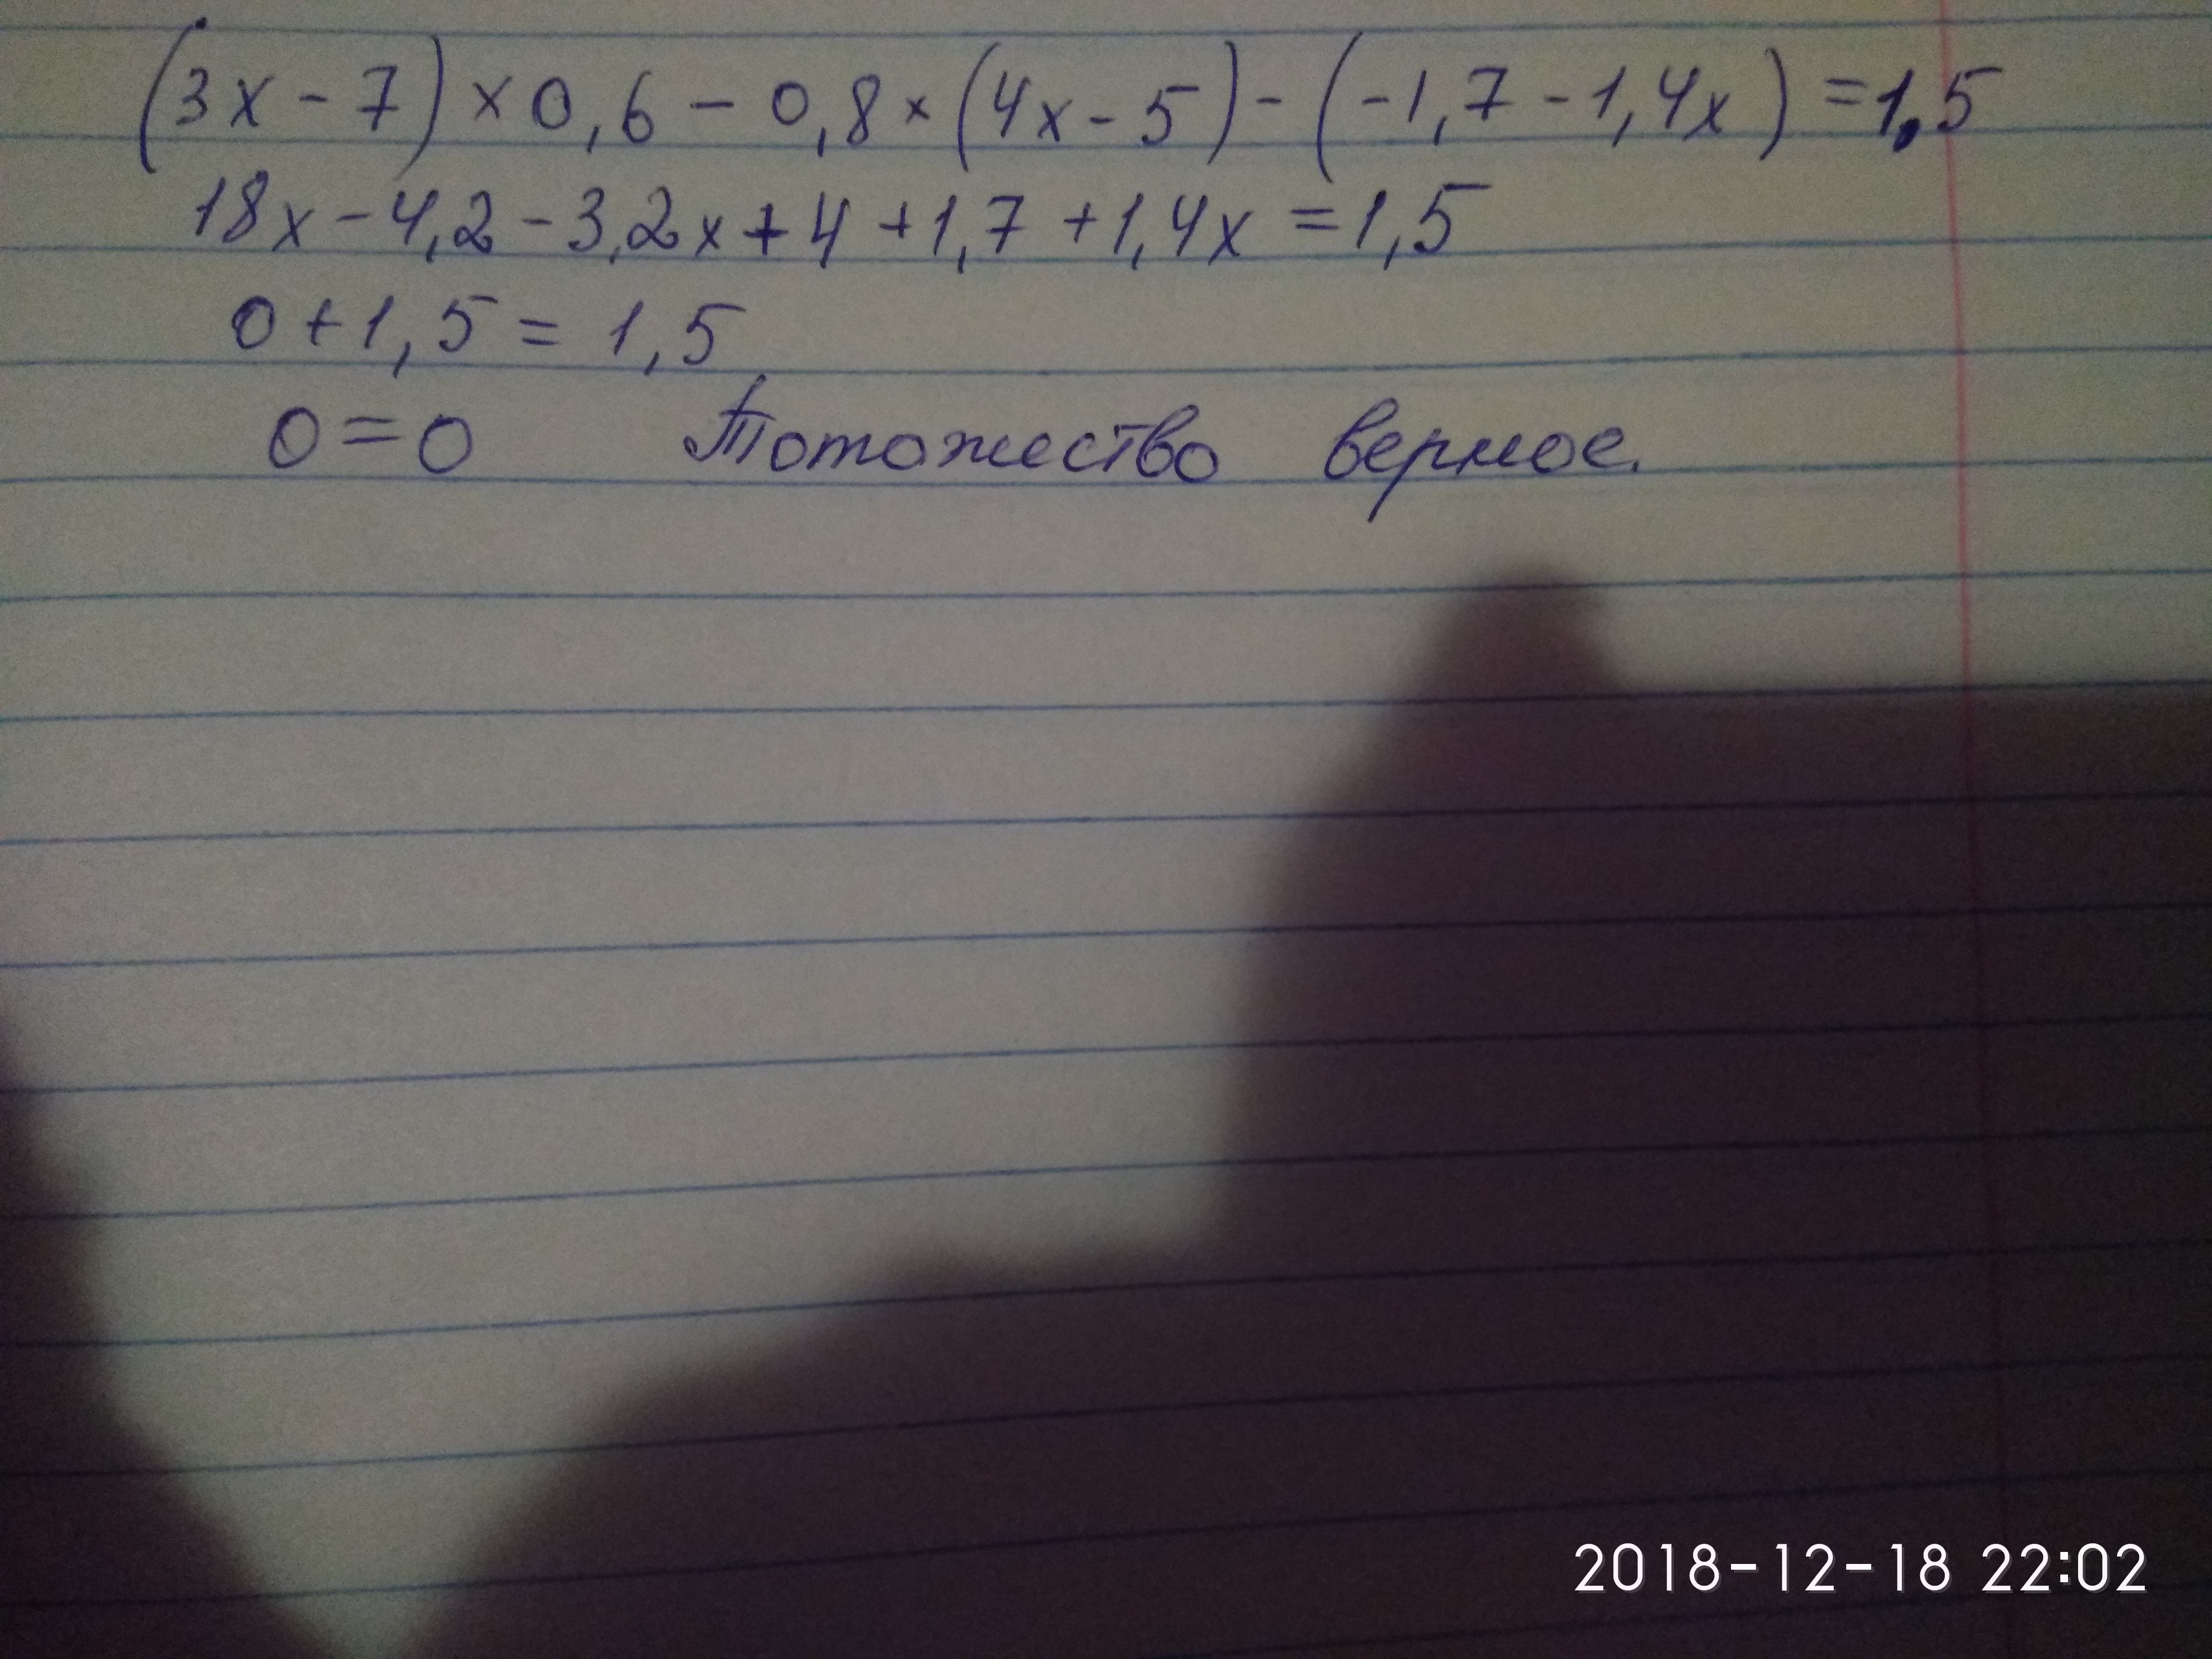 (3x-7)×0,6-0,8×(4x-5)-(-1,7-1,4x)=1,5
18x-4,2-3,2x+4+1,7+1,4x=1,5
0+1,5=1,5
0=0 Тотожество верное.
2018-12-18 22:02